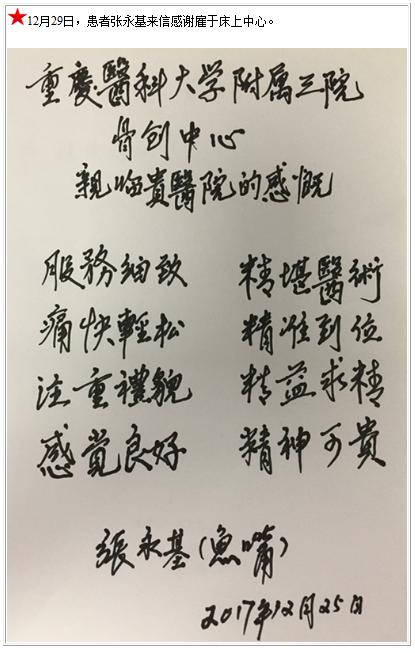 ★12月29日，患者张永基来信感谢雇于床上中心。
重慶醫科大学附属三院
骨创中心
親临貴醫院的感慨
服務细致 精堪醫術
痛快輕松 精准到位
注重禮貌 精益求精
感觉良好 精神可貴
張永基（魚嘴）
2017年12月25日